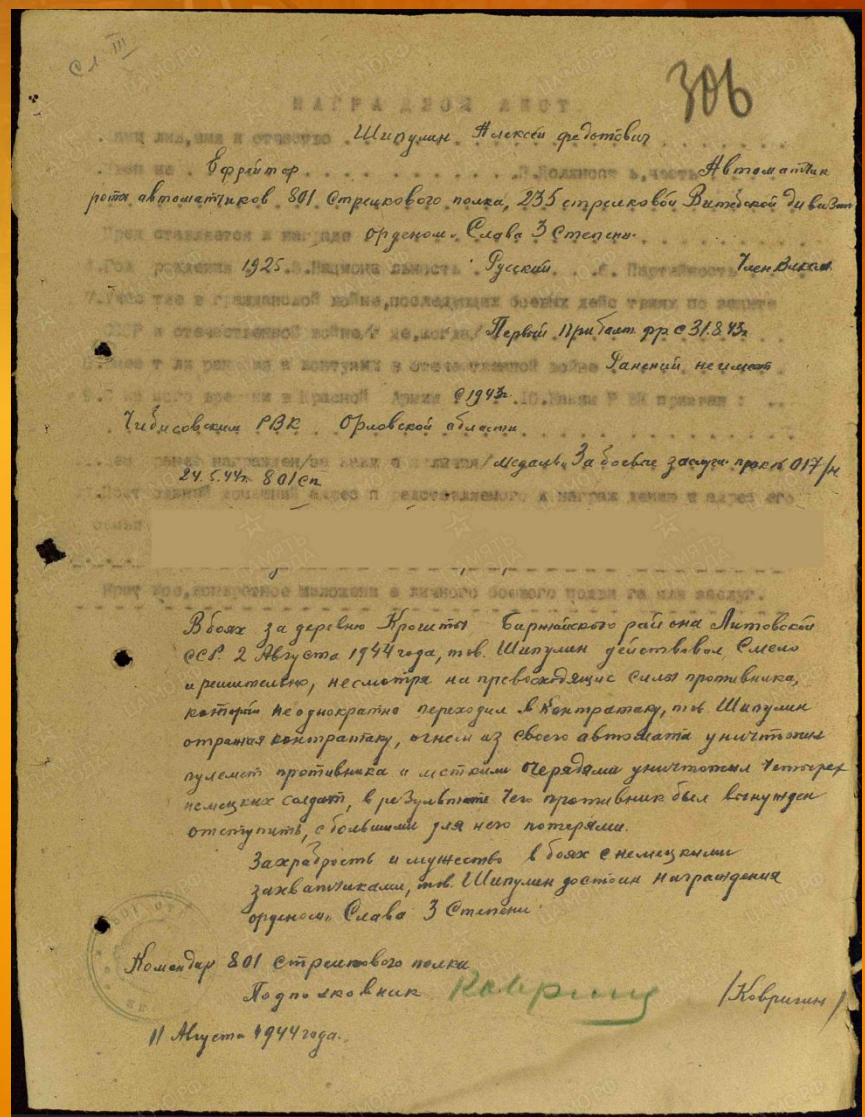 Сл III
306
НАГРАДНОЙ ЛИСТ
Фамилия, имя и отчество Шипулин Алексей Федотович
Звание Ефрейтор 2. Должность, часть Автоматчик
роты автоматчиков 801 Стрелкового полка, 235 стрелковой Витебской дивизии
Представляется к награде орденом „Слава 3 Степени“
4. Год рождения 1925 5. Национальность Русский 6. Партийность Член ВЛКСМ
7. Участие в гражданской войне, последующих боевых действиях по защите
СССР и отечественной войне /где, когда/ Первый Прибалт фр с 31.8.43г
8. Имеет ли ранения и контузии в отечественной войне Ранений не имеет
9. С какого времени в Красной Армии с 1943г 10. Каким РВК призван:
Чибисовским РВК Орловской области
Чем ранее награжден /за какие отличия/ Медаль „За боевые заслуги“ пр. № 017/н
24.5.44г. 801 сп
Постоянный домашний адрес представляемого к награждению и адрес его
семьи
Краткое, конкретное изложение личного боевого подвига или заслуг.
В боях за деревню Крошты Биржайского района Литовской
ССР. 2 Августа 1944 года, тов. Шипулин действовал Смело
и решительно, несмотря на превосходящие силы противника,
который неоднократно переходил в Контратаку, тов. Шипулин
отражая контратаку, огнем из своего автомата уничтожил
пулемет противника и меткими очередями уничтожил четырех
немецких солдат, в результате чего противник был вынужден
отступить, с большими для него потерями.
За храбрость и мужество в боях с немецкими
захватчиками, тов. Шипулин достоин награждения
орденом „Слава 3 Степени“
Командир 801 Стрелкового полка
Подполковник Ковригин /Ковригин/
11 Августа 1944 года.